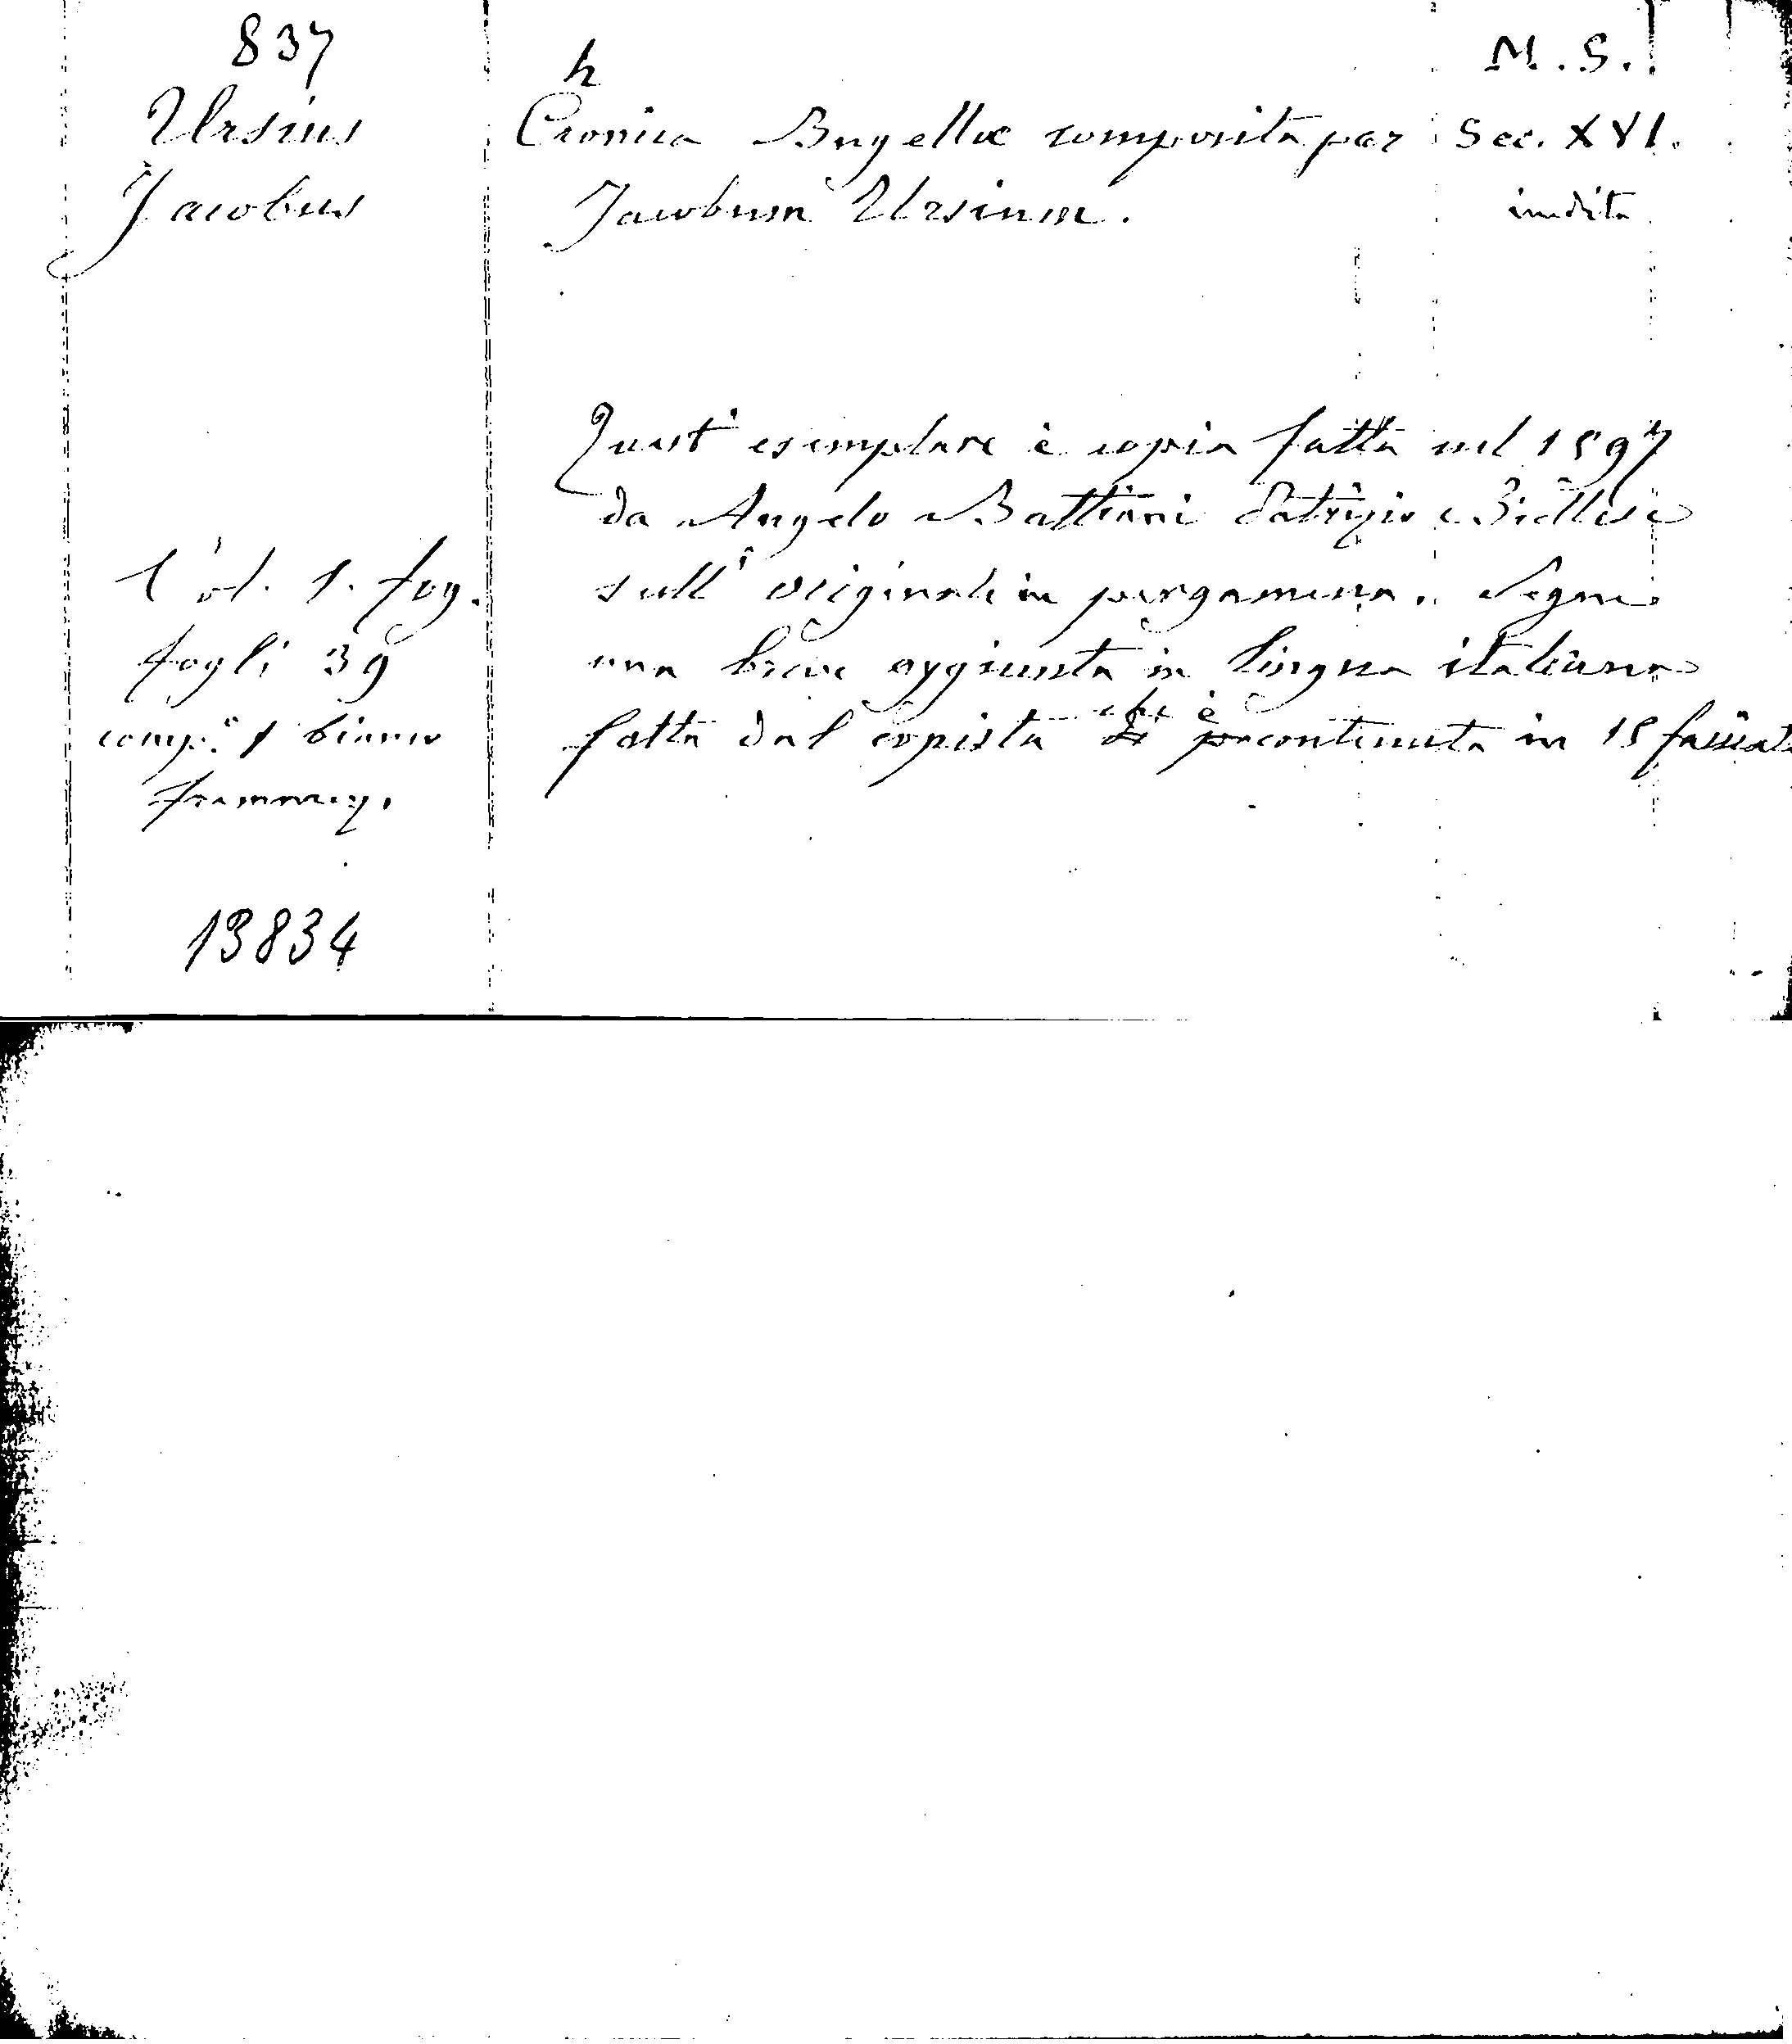 837
Ursius
Jacobus
Vol. 1. fog.
fogli 39
comp.° 1 bianco
frammez.
13834
h
Cronica Bugellæ composita per
Jacobum Ursium.
Quest' esemplare è copia fatta nel 1597
da Angelo Battiani Patrizio Biellese
sull' originale in pergamena. Segue
una breve aggiunta in lingua italiana
fatta dal copista che è contenuta in 15 facciate
M.S.
Sec. XVI.
inedita